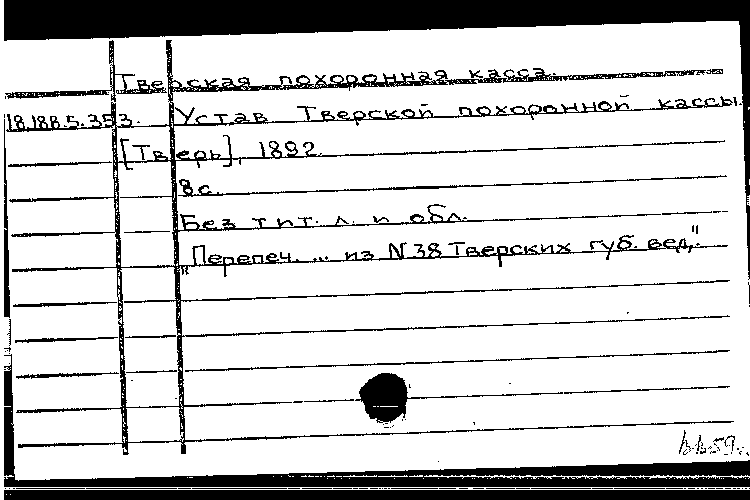 Тверская похоронная касса.
18.188.5.353. Устав Тверской похоронной кассы.
[Тверь], 1892.
8 с.
Без тит. л. и обл.
"Перепеч. ... из N 38 Тверских губ. вед."